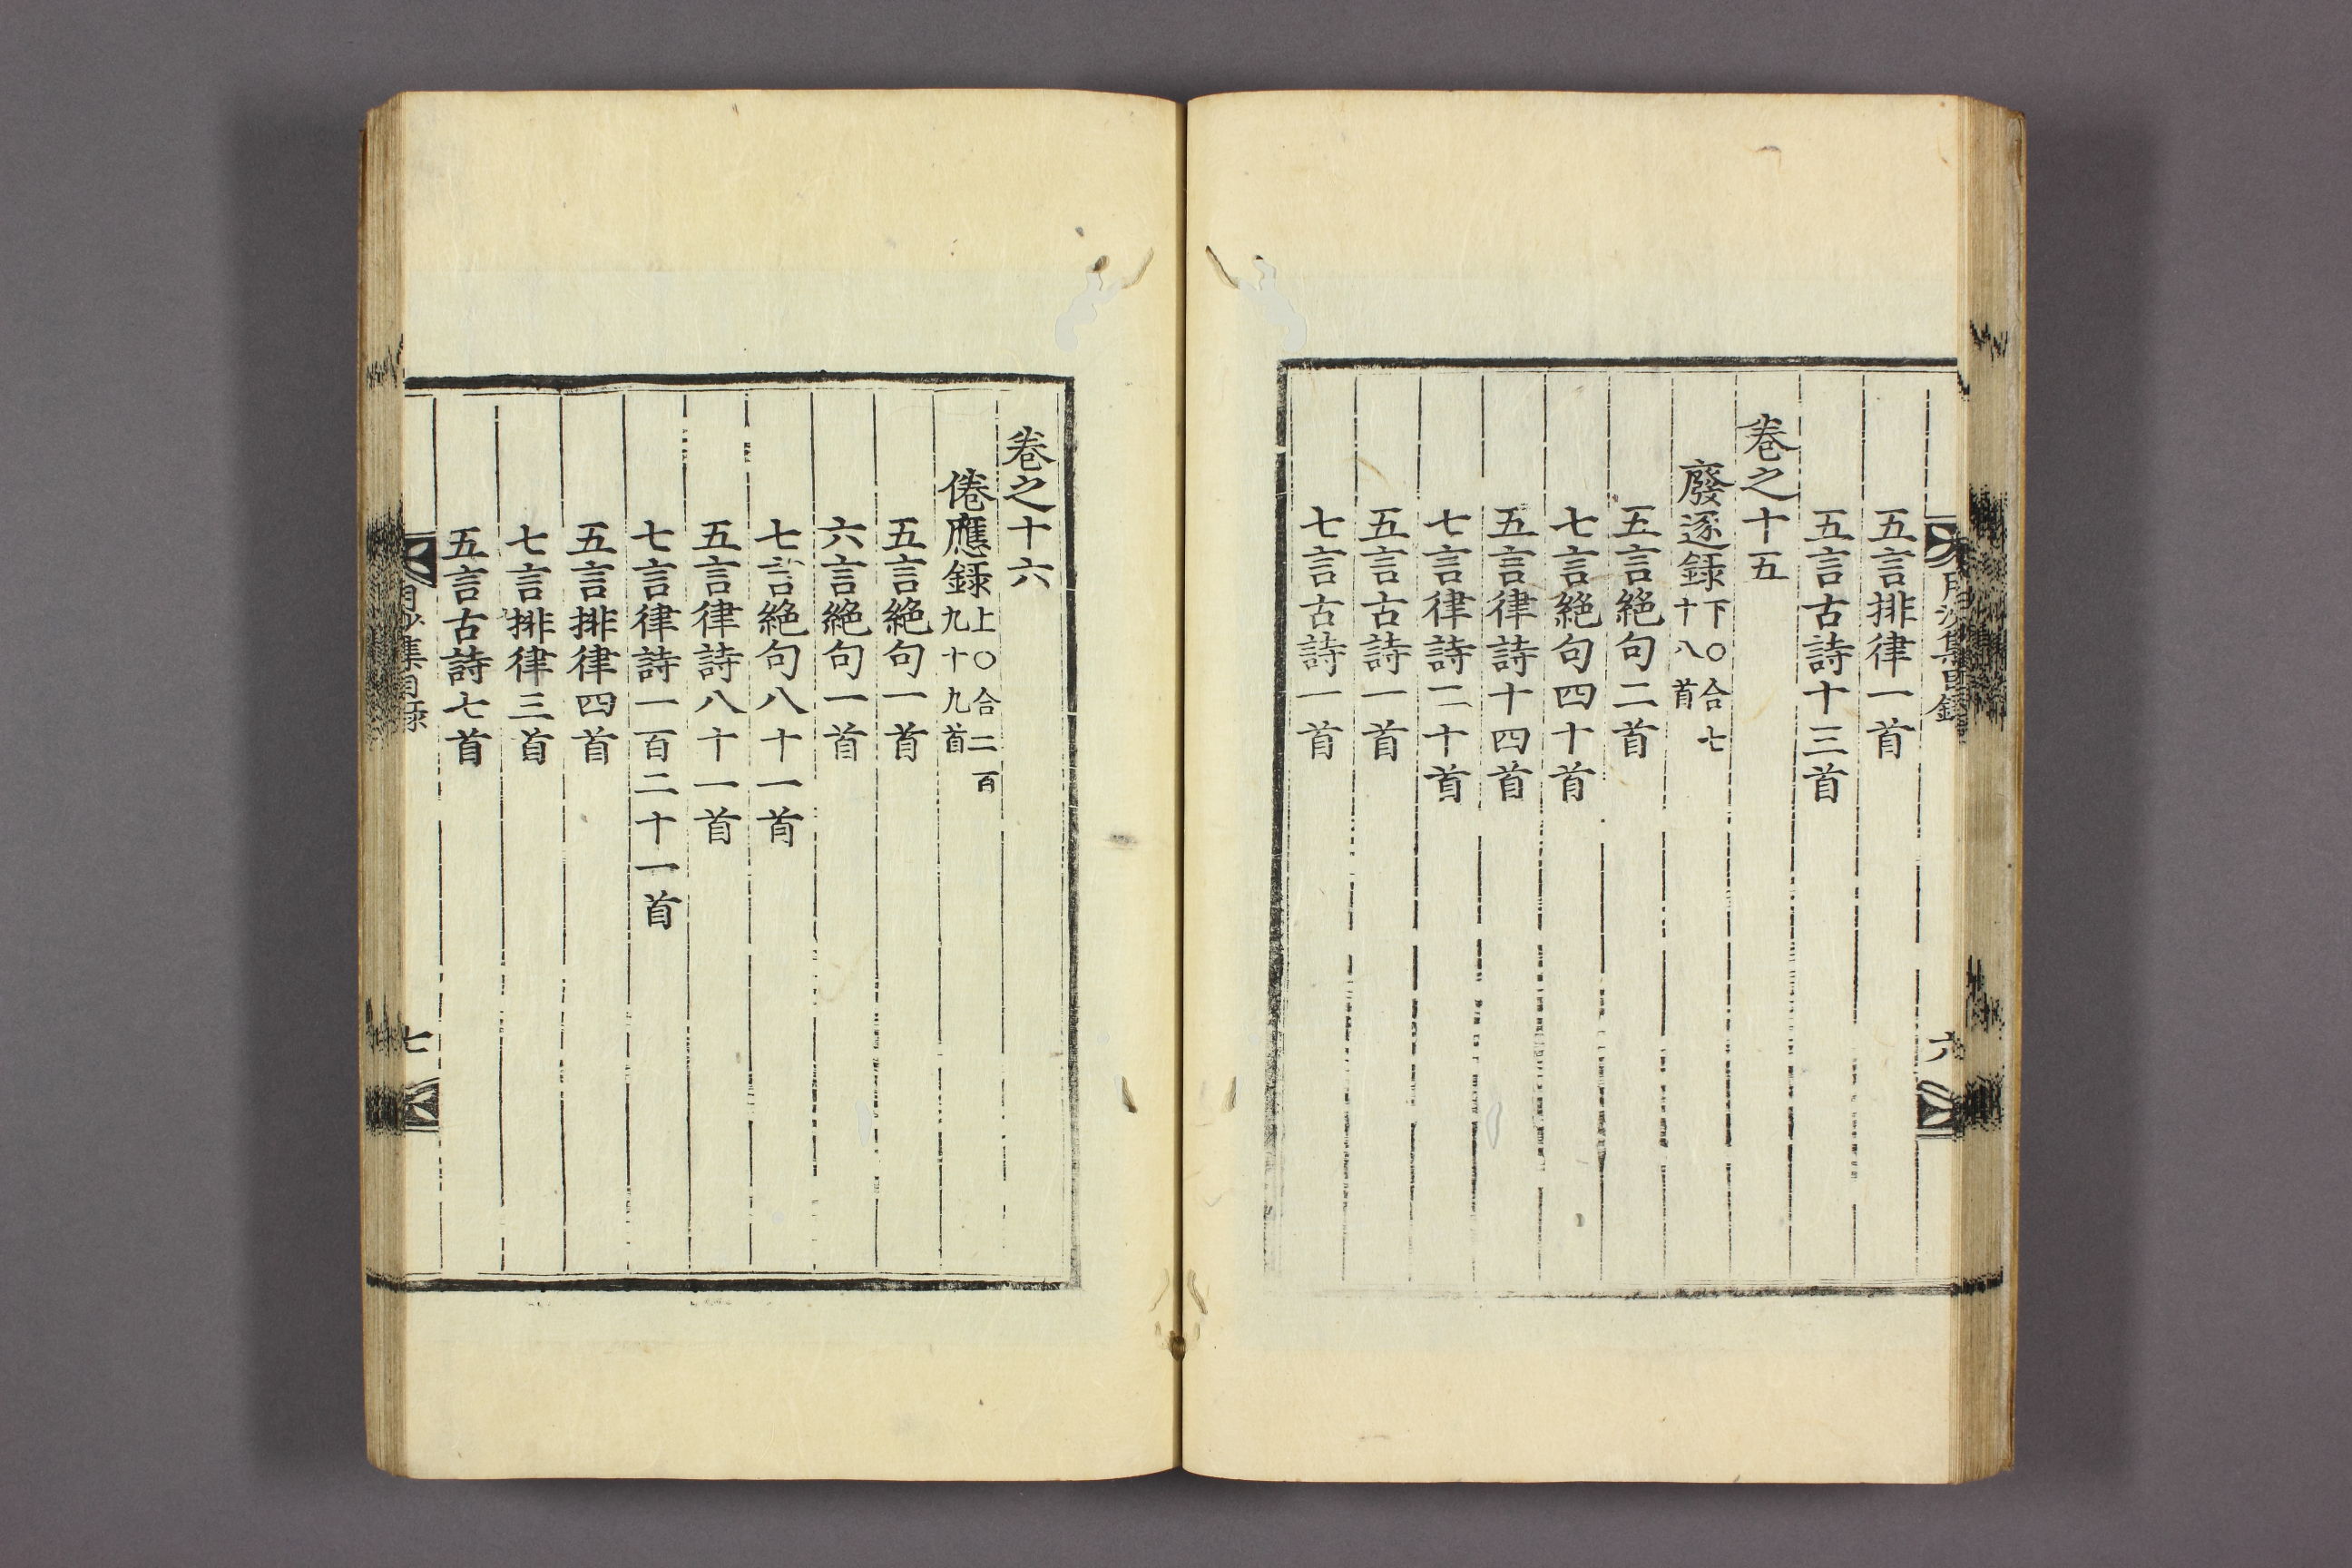 月沙集目錄
六
五言排律一首
五言古詩十三首
卷之十五
廢逐錄下○合七十八首
五言絶句二首
七言絶句四十首
五言律詩十四首
七言律詩二十首
五言古詩一首
七言古詩一首
卷之十六
倦應錄上○合二百九十九首
五言絶句一首
六言絶句一首
七言絶句八十一首
五言律詩八十一首
七言律詩一百二十一首
五言排律四首
七言排律三首
五言古詩七首
月沙集目錄
七